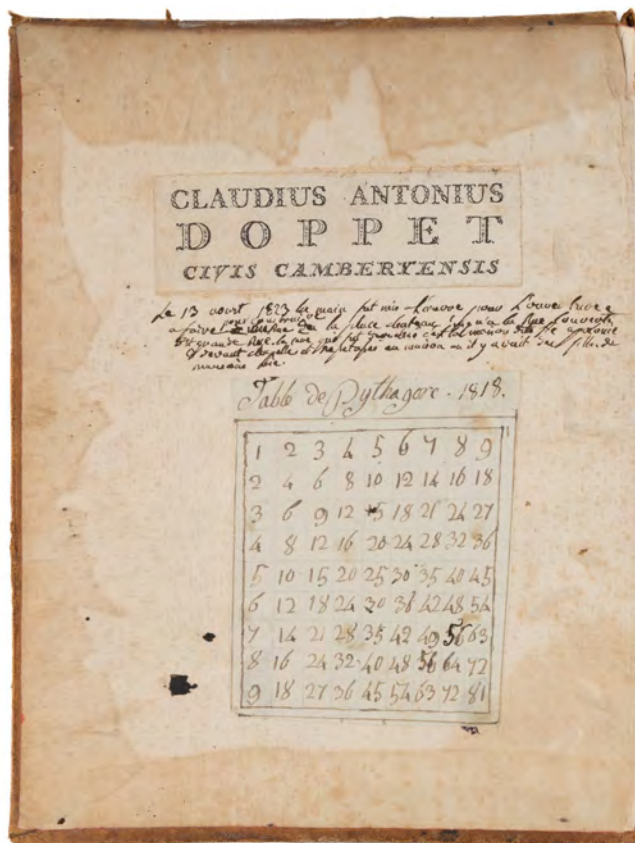 CLAUDIUS ANTONIUS
DOPPET
CIVIS CAMBERYENSIS
Le 13 aout 1823 la main fut mis pour
a faire la place chateau la Rue Couverte
grande Rue. la rue qui fut
devant chapelle et maison ou il y avait des filles de
mauvaise vie.
Table de Pythagore. 1818.
1 2 3 4 5 6 7 8 9
2 4 6 8 10 12 14 16 18
3 6 9 12 15 18 21 24 27
4 8 12 16 20 24 28 32 36
5 10 15 20 25 30 35 40 45
6 12 18 24 30 36 42 48 54
7 14 21 28 35 42 49 56 63
8 16 24 32 40 48 56 64 72
9 18 27 36 45 54 63 72 81